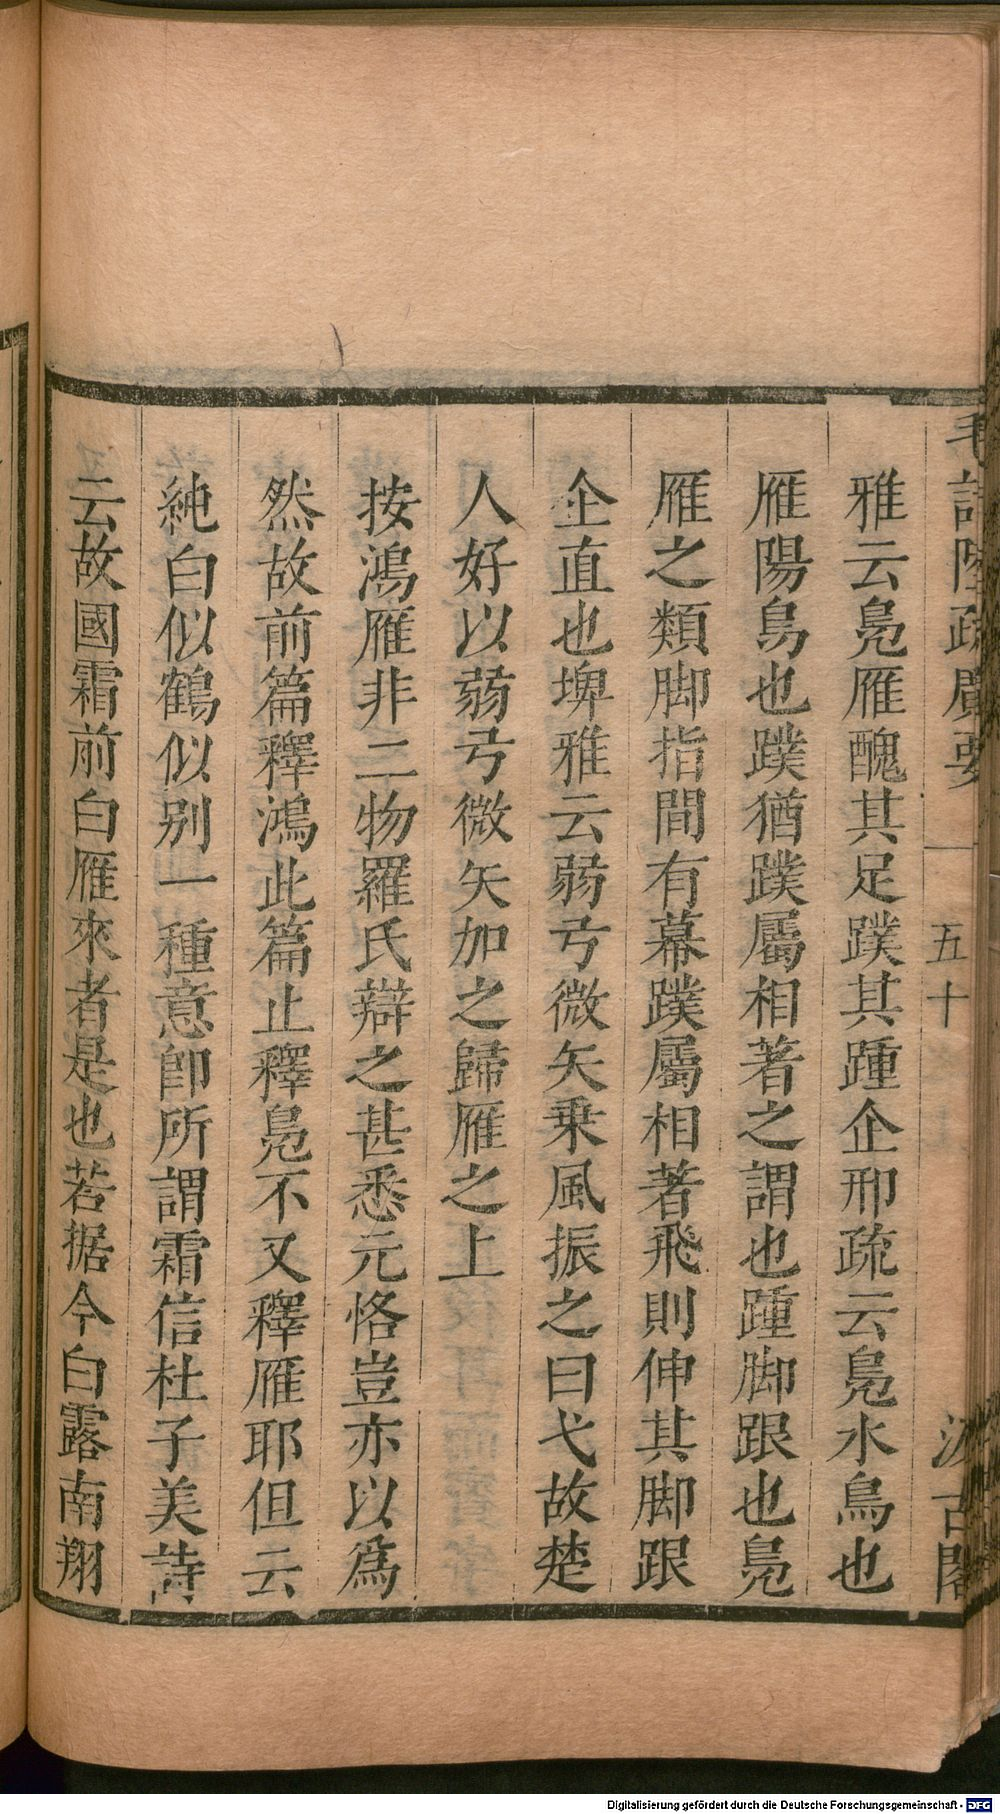 毛詩陸疏廣要
五十
汲古閣
雅云鳧雁醜其足蹼其踵企邢疏云鳧水鳥也
雁陽鳥也蹼猶蹼屬相著之謂也踵脚跟也鳧
雁之類脚指間有幕蹼屬相著飛則伸其脚跟
企直也埤雅云弱弓微矢乗風振之曰弋故楚
人好以弱弓微矢加之歸雁之上
按鴻雁非二物羅氏辯之甚悉元恪豈亦以爲
然故前篇釋鴻此篇止釋鳧不又釋雁耶但云
純白似鶴似别一種意卽所謂霜信杜子美詩
云故國霜前白雁來者是也若据今白露南翔
Digitalisierung gefördert durch die Deutsche Forschungsgemeinschaft - DFG